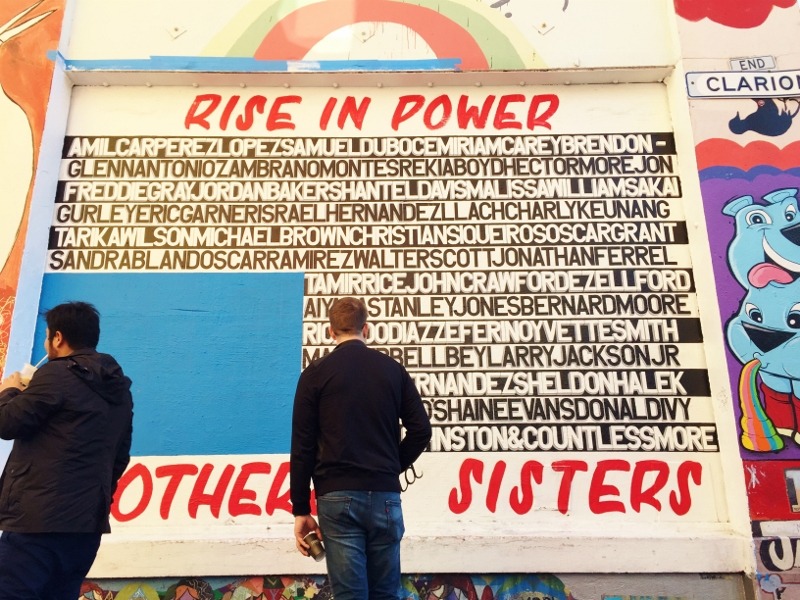 RISE IN POWER
AMILCARPEREZLOPEZSAMUELDUBOCEMIRIAMCAREYBRENDON-
GLENNANTONIOZAMBRANOMONTESREKIABOYDHECTORMOREJON
FREDDIEGRAYJORDANBAKERSHANTELDAVISMALISSAWILLIAMSAKAI
GURLEYERICGARNERISRAELHERNANDEZLLACHCHARLYKEUNANG
TARIKAWILSONMICHAELBROWNCHRISTIANSIQUEIROSOSCARGRANT
SANDRABLANDOSCARRAMIREZWALTERSCOTTJONATHANFERREL
TAMIRRICEJOHNCRAWFORDEZELLFORD
STANLEYJONESBERNARDMOORE
DIAZZEFERINOYVETTESMITH
BELLBEYLARRYJACKSONJR
RNANDEZSHELDONHALEK
SHAINEEVANSDONALDIVY
INSTON&COUNTLESSMORE
OTHER
SISTERS
END
CLARION